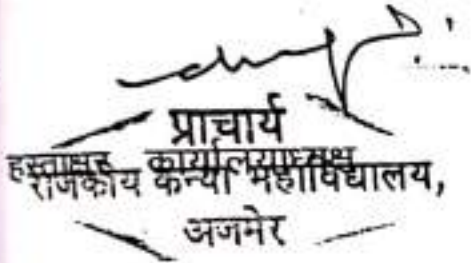 प्राचार्य
हस्ताक्षर कार्यालयाध्यक्ष
राजकीय कन्या महाविद्यालय,
अजमेर